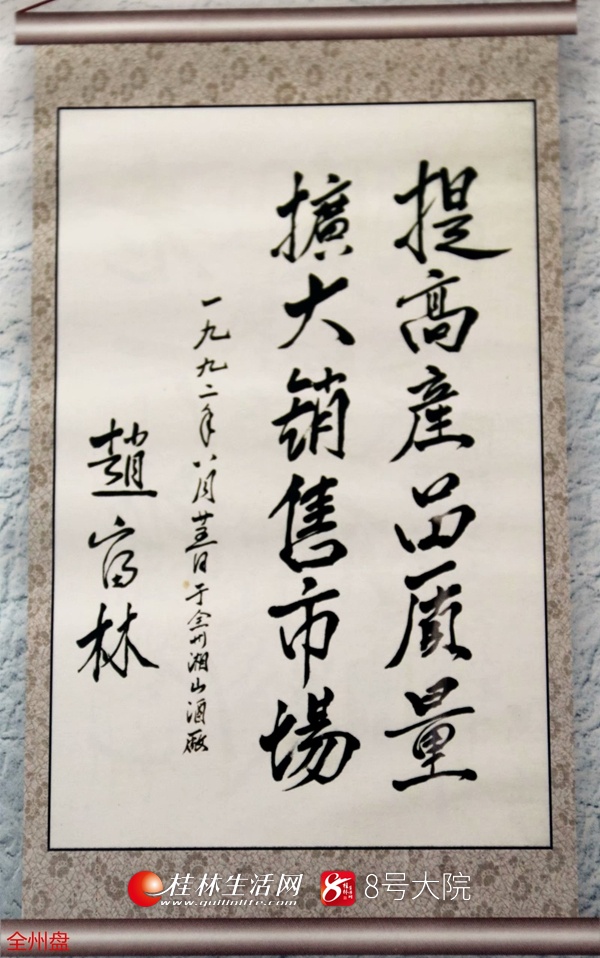 提高產品质量
擴大銷售市場
一九九二年八月廿五日于全州湘山酒廠
趙富林
桂林生活网
www.guilinlife.com
8号大院
全州盘